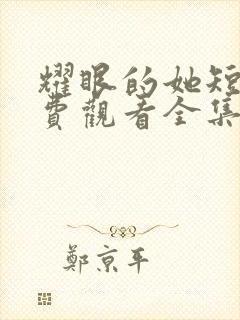 耀眼的她短
費觀看全集
鄭京平